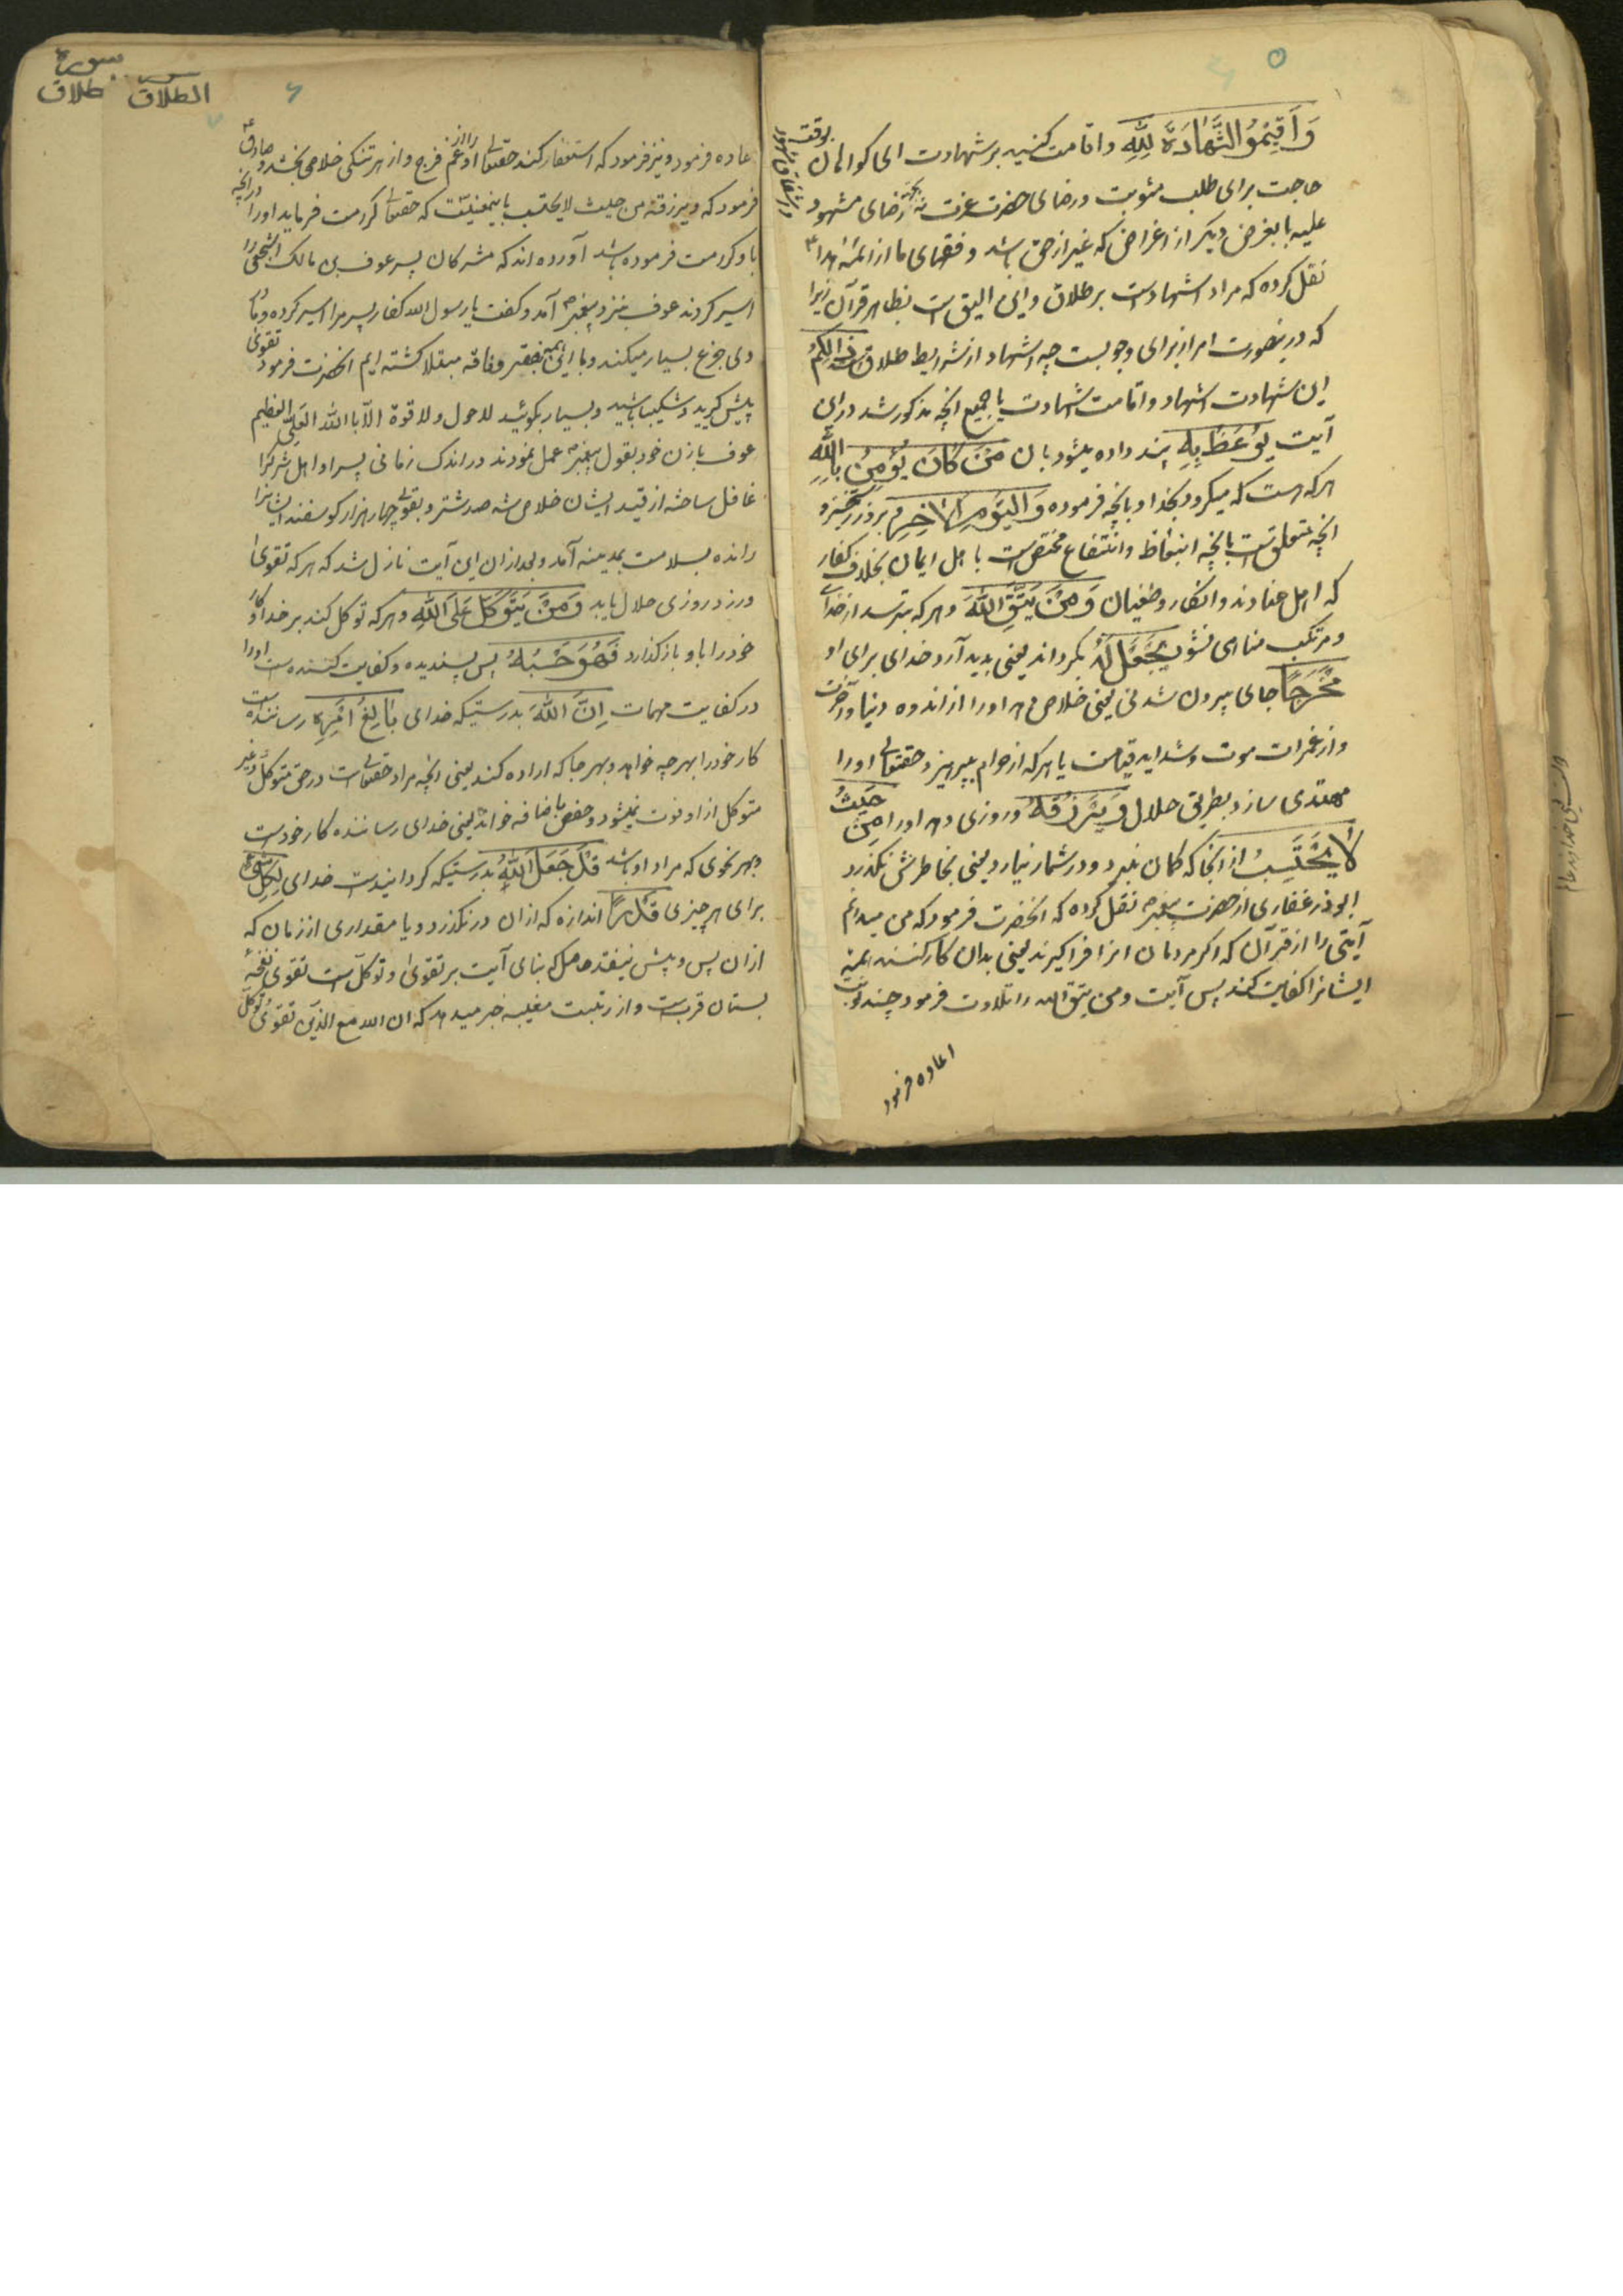 وَاَقِیْمُوا الشَّهَادَةَ لِلّٰهِ و اقامت کنید بر شهادت ای گواهان بوقت
حاجت برای طلب مثوبت و رضای حضرت عزت نه بجهة رضای مشهود
علیه یا بغرض دیکر از اغراض که غیر از حق باشد و فقهای ما از ائمهٔ هدا ع
نقل کرده که مراد اشهادست بر طلاق و این الیق است بظاهر قرآن زیرا
که درینصورت امر از برای وجوبست چه اشهاد از شرایط طلاق است ذٰلِکُمْ
این شهادت اشهاد و اقامت شهادت یا جمیع انچه مذکور شد در این
آیت یُوْعَظُ بِهٖ پند داده میشود بان مَنْ کَانَ یُؤْمِنُ بِاللّٰهِ
هر که هست که میکرود بخدا و بانچه فرموده وَالْیَوْمِ الْاٰخِرِ و بروز رستخیز و
انچه متعلق است بانچه اتعاظ و انتفاع مختص است باهل ایمان بخلاف کفار
که اهل عنادند و انکار و طغیان وَمَنْ یَتَّقِ اللّٰهَ و هر که بترسد از خدای
و مرتکب مناهی نشود یَجْعَلْ لَهُ بکرداند یعنی بدید آرد خدای برای او
مَخْرَجًا جای بیرون شدنی یعنی خلاصی دهد اورا از اندوه دنیا و آخرت
و از غمرات موت و شداید قیامت یا هر که از حرام بپرهیزد حقتعالی اورا
مهتدی سازد بطریق حلال وَیَرْزُقْهُ و روزی دهد اورا مِنْ حَیْثُ
لَا یَحْتَسِبُ از انجا که کمان نبرد و در شمار نیارد یعنی بخاطرش نکذرد
ابوذر غفاری از حضرت پیغمبر ص نقل کرده که انحضرت فرمود که من میدانم
آیتی را از قرآن که اکر مردمان انرا فرا کیرند یعنی بدان کار کنند همهٔ
ایشانرا کفایت کند پس آیت ومن یتق الله را تلاوت فرمود چند نوبت
اعاده فرمود
سورة الطلاق
سورة طلاق
اعاده فرمود و نیز فرمود که استغفار کنند حقتعالی او را از غم فرج و از هر تنکی خلاصی بخشد و صادق ع
فرمود که ویرزقه من حیث لا یحتسب باینمعنیست که حقتعالی کرامت فرماید اورا در انچه
باو کرامت فرموده باشد آورده اند که مشرکان پسر عوف بن مالک اشجعی را
اسیر کردند عوف بنزد پیغمبر ص آمد و کفت یا رسول الله کفار پسر مرا اسیر کرده و مادر
وی جزع بسیار میکند و با این همه بفقر و فاقه مبتلا کشته ایم انحضرت فرمود تقوی
پیش کیرید و شکیبا باشید و بسیار بکوئید لاحول ولا قوة الا بالله العلی العظیم
عوف با زن خود بقول پیغمبر ص عمل نمودند در اندک زمانی پسر او اهل شرک را
غافل ساخته از قید ایشان خلاص شد صد شتر و بقولی چهار هزار کوسفند ایشانرا
رانده بسلامت بمدینه آمد و بعد از ان این آیت نازل شد که هر که تقوی
ورزد روزی حلال یابد وَمَنْ یَتَوَکَّلْ عَلَی اللّٰهِ و هر که توکل کند بر خدا و کار
خود را باو باز کذارد فَهُوَ حَسْبُهُ پس پسندیده و کفایت کننده است اورا
در کفایت مهمات اِنَّ اللّٰهَ بدرستیکه خدای بَالِغُ اَمْرِهٖ رساننده است
کار خود را بهر چه خواهد و بهر جا که اراده کند یعنی انچه مراد حقتعالی است در حق متوکل و غیر
متوکل از او فوت نمیشود و حفص باضافه خواند یعنی خدای رساننده کار خودست
بهر نحوی که مراد او باشد قَدْ جَعَلَ اللّٰهُ بدرستیکه کردانیدست خدای لِکُلِّ شَیْءٍ
برای هر چیزی قَدْرًا اندازه که از ان در نکذرد و یا مقداری از زمان که
از ان پس و پیش نیفتد حاصل که بنای آیت بر تقوی و توکل است تقوی نفحهٔ
بستان قربست و از رتبت معیت خبر میدهد که ان الله مع الذین تقوی و توکل